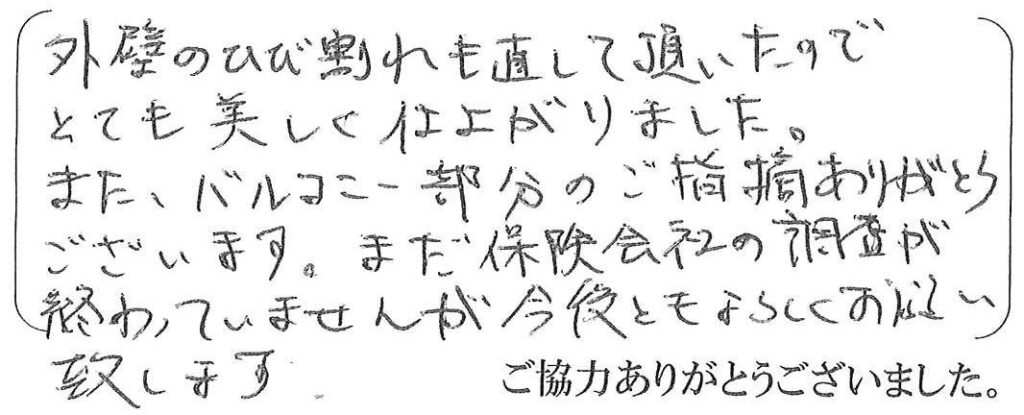 外壁のひび割れも直して頂いたので
とても美しく仕上がりました。
また、バルコニー部分のご指摘ありがとう
ございます。まだ保険会社の調査が
終わっていませんが今後ともよろしくお願い
致します.
ご協力ありがとうございました。